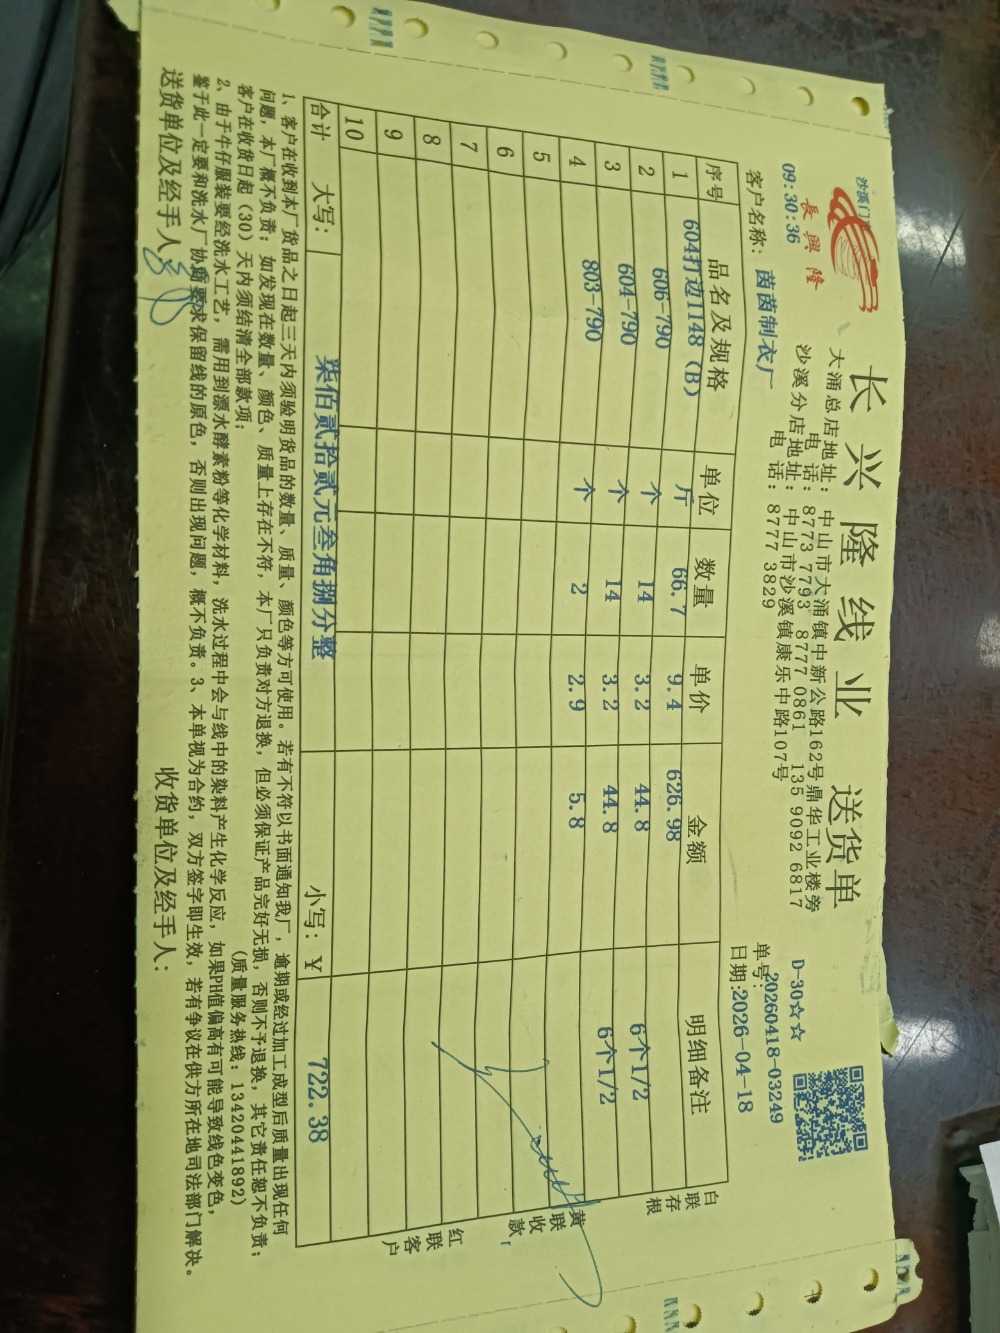 沙溪门
長興隆
09:30:36
长兴隆线业 送货单
大涌总店地址: 中山市大涌镇中新公路162号鼎华工业楼旁
电 话: 8773 7793 8777 0861 135 9092 6817
沙溪分店地址: 中山市沙溪镇康乐中路107号
电 话: 8777 3829
D-30☆☆
单号:20260418-03249
客户名称: 茵茵制衣厂
日期:2026-04-18
序号 品名及规格 单位 数量 单价 金额 明细备注
1 604打边1148 (B) 斤 66.7 9.4 626.98
2 606-790 个 14 3.2 44.8 6个1/2
3 604-790 个 14 3.2 44.8 6个1/2
4 803-790 个 2 2.9 5.8
5
6
7
8
9
10
合计 大写: 柒佰贰拾贰元叁角捌分整 小写: ¥ 722.38
白联存根
黄联收款
红联客户
1、客户在收到本厂货品之日起三天内须验明货品的数量、质量、颜色等方可使用。若有不符以书面通知我厂,逾期或经过加工成型后质量出现任何
问题,本厂概不负责;如发现在数量、颜色、质量上存在不符,本厂只负责对方退换,但必须保证产品完好无损,否则不予退换,其它责任恕不负责;
客户在收货日起(30)天内须结清全部款项; (质量服务热线:13420441892)
2、由于牛仔服装要经洗水工艺,需用到漂水酵素粉等化学材料,洗水过程中会与线中的染料产生化学反应,如果PH值偏高有可能导致线色变色,
鉴于此一定要和洗水厂协商要求保留线的原色,否则出现问题,概不负责。3、本单视为合约,双方签字即生效,若有争议在供方所在地司法部门解决。
送货单位及经手人: 收货单位及经手人: